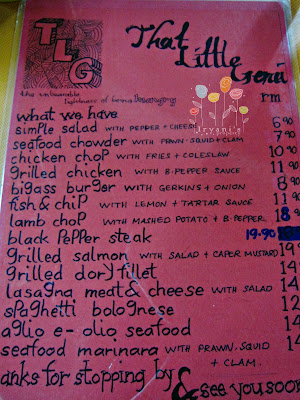 TLG
That
Little
Genii
the unbearable
lightness of being hungry
rm
Jryenie
what we have
simple salad WITH PEPPER + CHEESE 6.90
seafood chowder WITH PRAWN. SQUID + CLAM 7.90
chicken chop WITH FRIES + COLESLAW 10.90
grilled chicken WITH B.PEPPER SAUCE 11
bigass burger WITH GERKINS + ONION 8.90
fish & chip WITH LEMON + TARTAR SAUCE 11
lamb chop WITH MASHED POTATO & B.PEPPER 18.90
black pepper steak 19.90
grilled salmon WITH SALAD + CAPER MUSTARD 19
grilled dory fillet 14
lasagna meat & cheese WITH SALAD 14
spaghetti bolognese 12
aglio e-olio seafood 14
seafood marinara WITH PRAWN. SQUID 14
+ CLAM.
anks for stopping by & see you soon